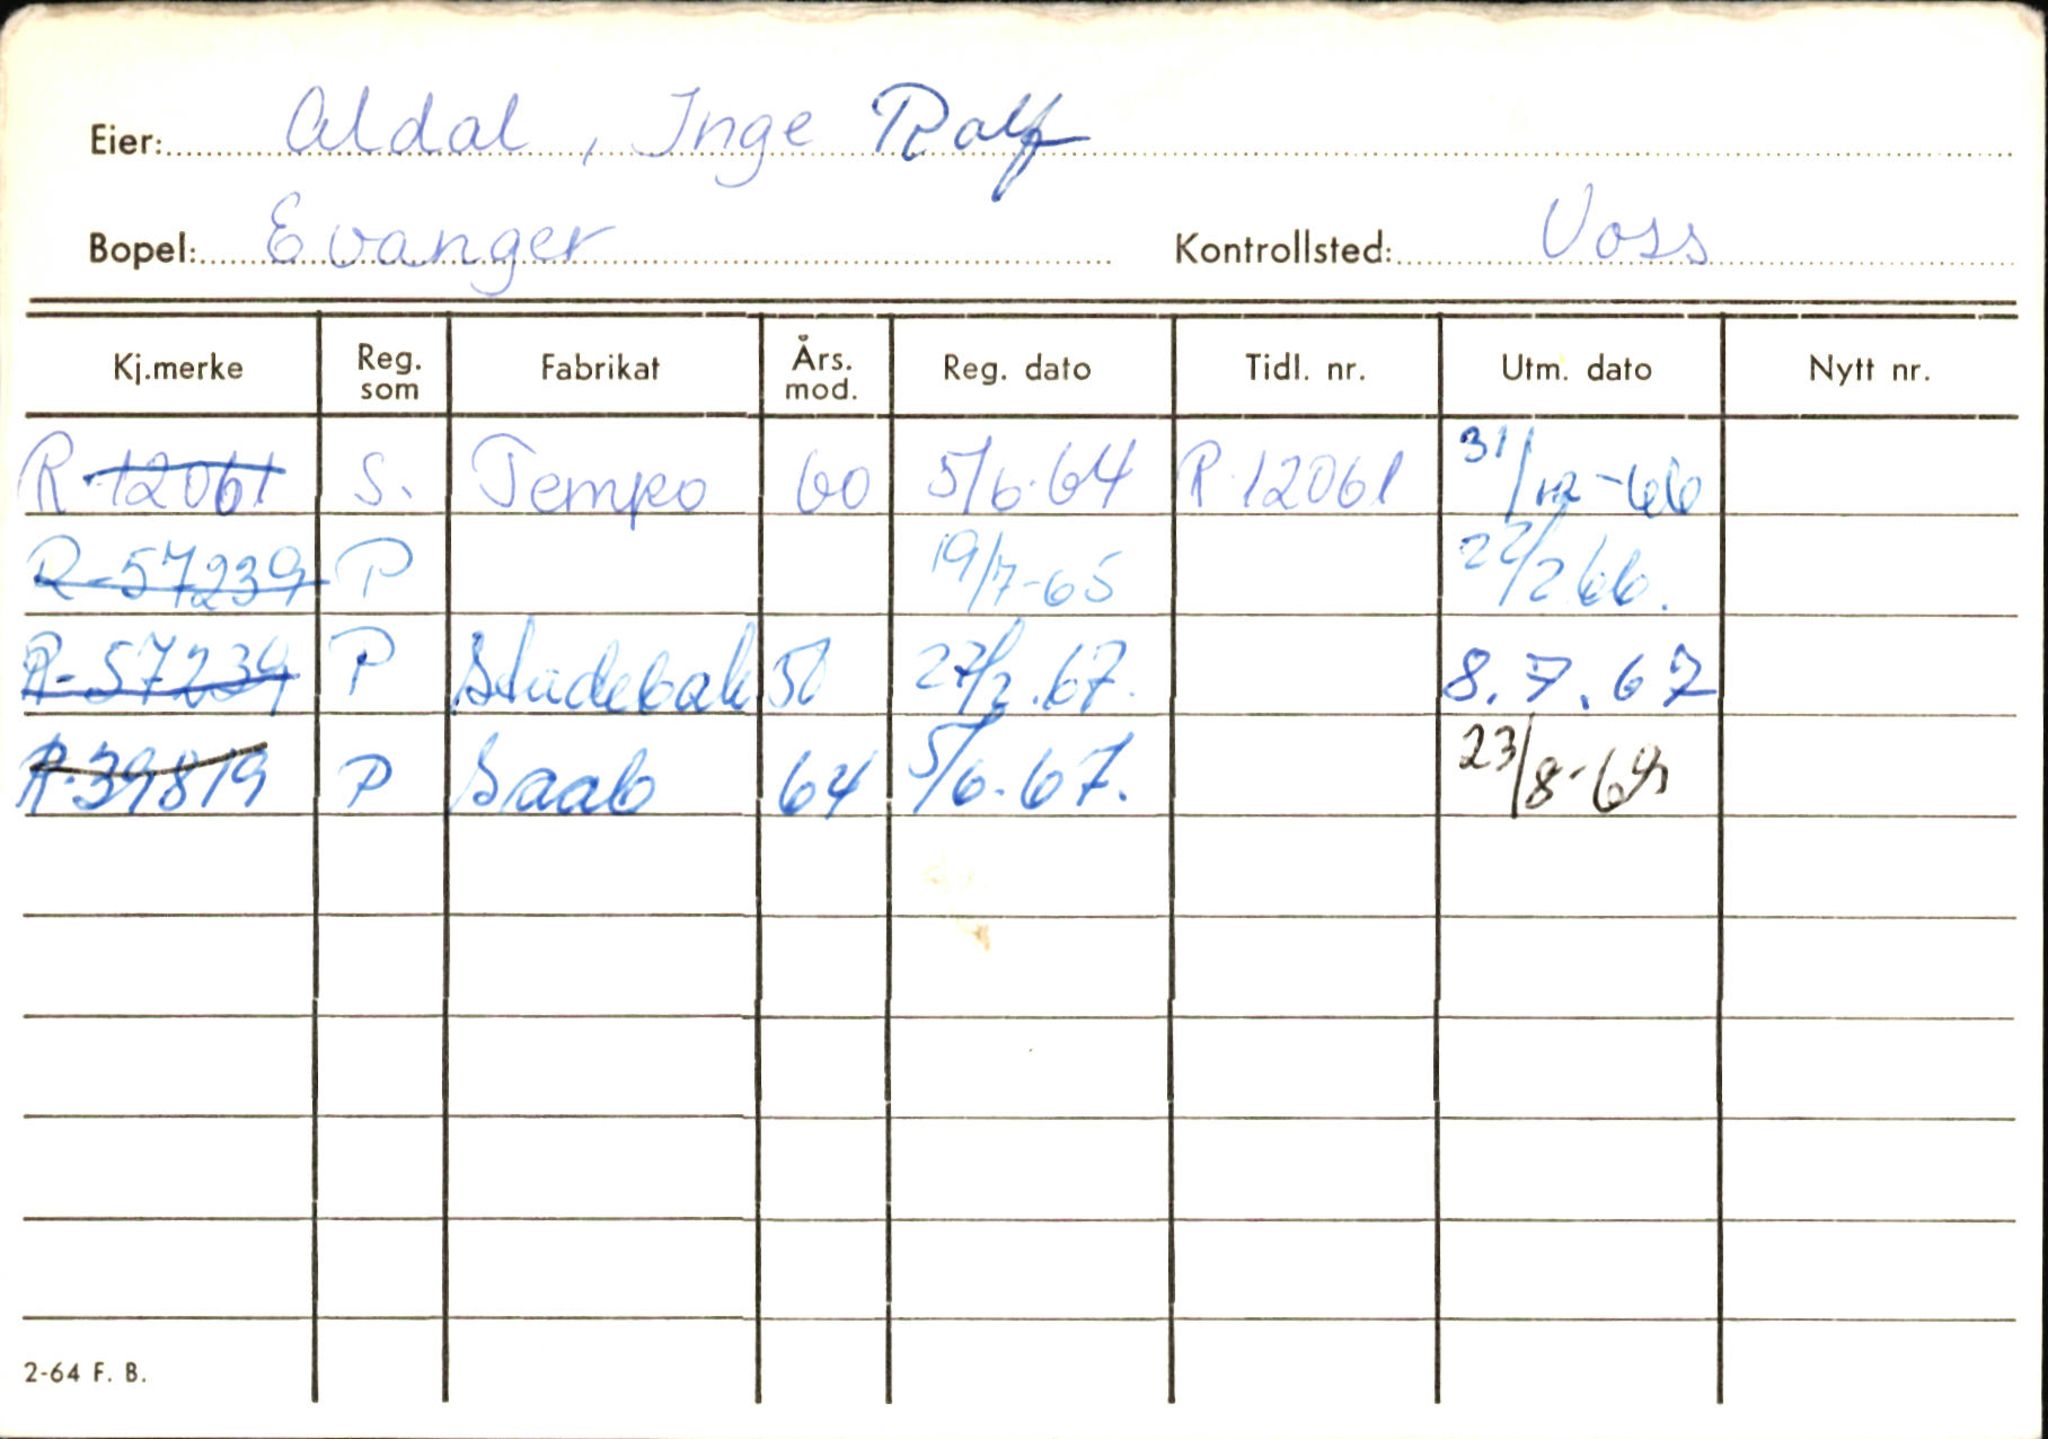 Eier: Aldal, Inge Ralf
Bopel: Evanger Kontrollsted: Voss
Kj.merke Reg. som Fabrikat Års. mod. Reg. dato Tidl. nr. Utm. dato Nytt nr.
R-12061 S. Tempo 60 5/6-64 R-12061 31/12-66
R-57239 P 19/7-65 22/2 66.
R-57239 P Studebak 50 27/2.67. 8.7.67
R-39819 P Saab 64 5/6-67. 23/8-69
2-64 F. B.